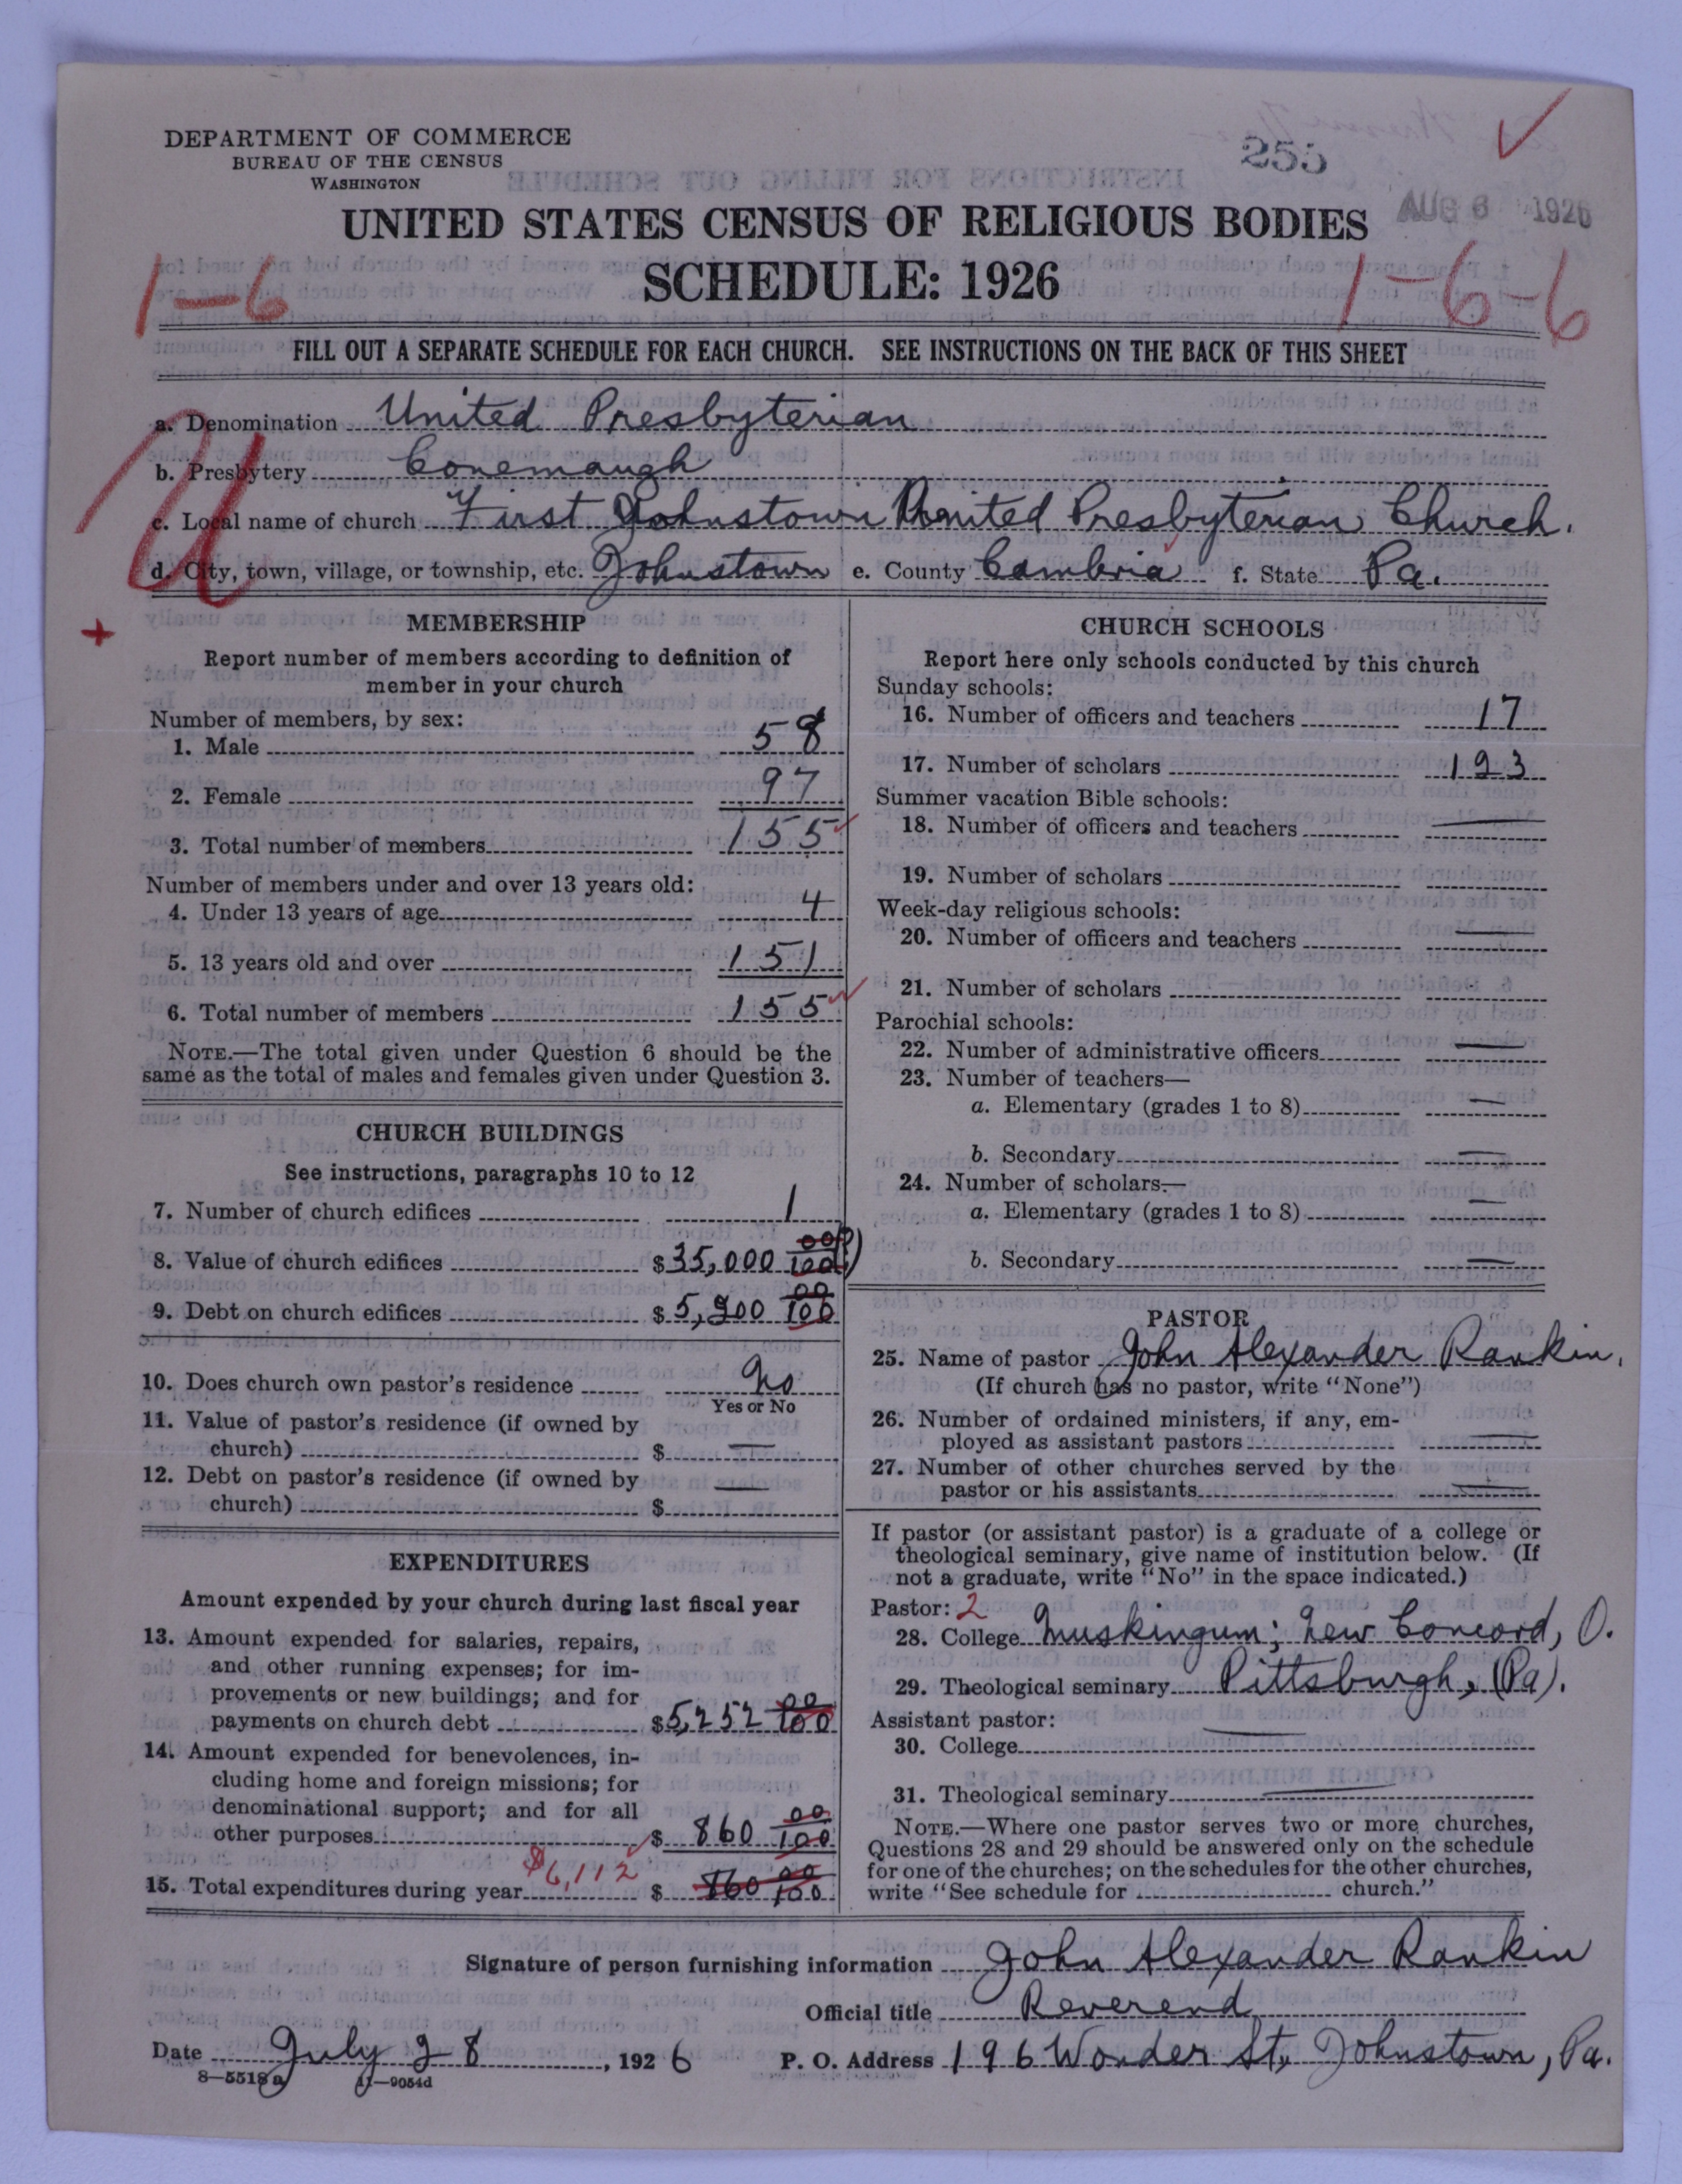 DEPARTMENT OF COMMERCE
BUREAU OF THE CENSUS
WASHINGTON
255
AUG 6 1926
UNITED STATES CENSUS OF RELIGIOUS BODIES
SCHEDULE: 1926
1-6
1-6-6
FILL OUT A SEPARATE SCHEDULE FOR EACH CHURCH. SEE INSTRUCTIONS ON THE BACK OF THIS SHEET
U
a. Denomination United Presbyterian
b. Presbytery Conemaugh
c. Local name of church First Johnstown United Presbyterian Church.
d. City, town, village, or township, etc. Johnstown e. County Cambria f. State Pa.
+
MEMBERSHIP
Report number of members according to definition of
member in your church
Number of members, by sex:
1. Male 58
2. Female 97
3. Total number of members 155
Number of members under and over 13 years old:
4. Under 13 years of age 4
5. 13 years old and over 151
6. Total number of members 155
NOTE.—The total given under Question 6 should be the
same as the total of males and females given under Question 3.
CHURCH BUILDINGS
See instructions, paragraphs 10 to 12
7. Number of church edifices 1
8. Value of church edifices $35,000 00/100
9. Debt on church edifices $5,200 00/100
10. Does church own pastor's residence No
Yes or No
11. Value of pastor's residence (if owned by
church) $ —
12. Debt on pastor's residence (if owned by
church) $ —
EXPENDITURES
Amount expended by your church during last fiscal year
13. Amount expended for salaries, repairs,
and other running expenses; for im-
provements or new buildings; and for
payments on church debt $5,252 00/100
14. Amount expended for benevolences, in-
cluding home and foreign missions; for
denominational support; and for all
other purposes $ 860 00/100
$6,112
15. Total expenditures during year $ 860 00/100
CHURCH SCHOOLS
Report here only schools conducted by this church
Sunday schools:
16. Number of officers and teachers 17
17. Number of scholars 123
Summer vacation Bible schools:
18. Number of officers and teachers —
19. Number of scholars
Week-day religious schools:
20. Number of officers and teachers —
21. Number of scholars
Parochial schools:
22. Number of administrative officers —
23. Number of teachers—
a. Elementary (grades 1 to 8) —
b. Secondary —
24. Number of scholars—
a. Elementary (grades 1 to 8) —
b. Secondary —
PASTOR
25. Name of pastor John Alexander Rankin.
(If church has no pastor, write "None")
26. Number of ordained ministers, if any, em-
ployed as assistant pastors —
27. Number of other churches served by the
pastor or his assistants —
If pastor (or assistant pastor) is a graduate of a college or
theological seminary, give name of institution below. (If
not a graduate, write "No" in the space indicated.)
Pastor: 2
28. College Muskingum; New Concord, O.
29. Theological seminary Pittsburgh, (Pa).
Assistant pastor:
30. College —
31. Theological seminary —
NOTE.—Where one pastor serves two or more churches,
Questions 28 and 29 should be answered only on the schedule
for one of the churches; on the schedules for the other churches,
write "See schedule for church."
Signature of person furnishing information John Alexander Rankin
Official title Reverend
Date July 28, 1926 P. O. Address 196 Wonder St, Johnstown, Pa.
8—5518a 11—9054d